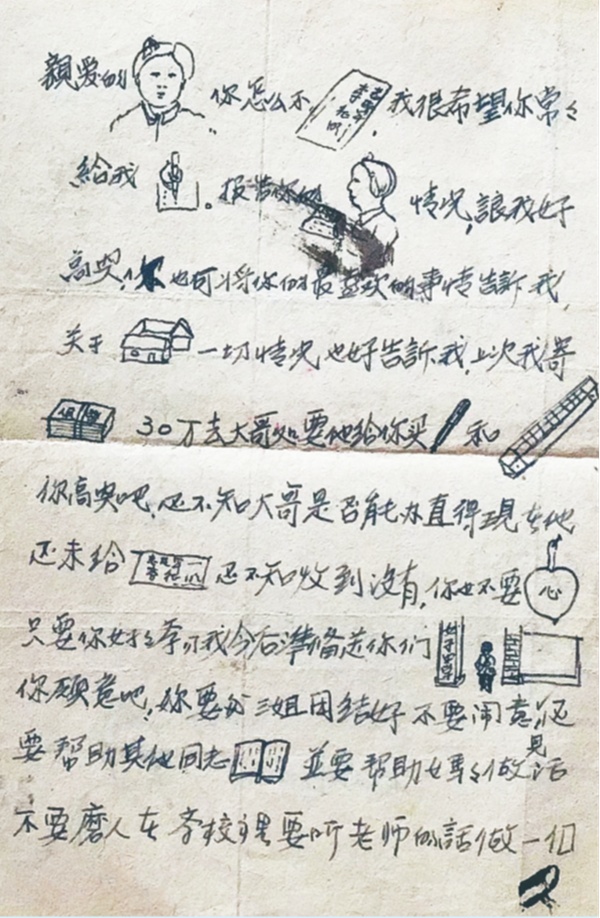 親爱的 你怎么不 李相 我很希望你常々
給我 。报告你的 情况,讓我好
高兴,你也可将你们最喜欢的事情告訴我,
关于 一切情况也好告訴我,上次我寄
30万去大哥处要他给你买 和
你高兴吧,还不知大哥是否能办直得現在他
还未给 还不知收到没有,你也不要 心
只要你好好学习我今后準备送你们
你願意吧,你要与三姐团结好不要闹意見还
要帮助其他同志 並要帮助女事々做活
不要磨人在学校里要听老师的話做一個